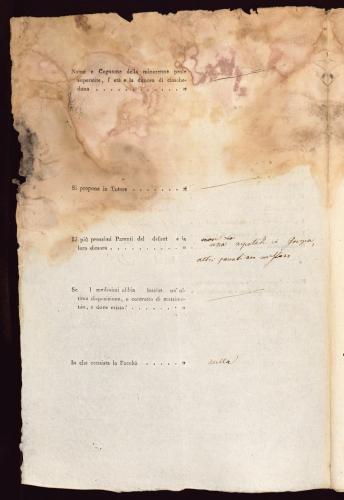 Nome e Cognome della minorenne prole
superstite, l' età e la dimora di ciasche-
duna . . . . . . . . . . . . "
Si propone in Tutore . . . . . . . . "
Li più prossimi Parenti del defunt e la
loro dimora . . . . . . . . . . . . "
una
altri
Se I medesimi abbia lasciat un' ul-
tima disposizione, o contratto di matrimo-
nio, e dove esista? . . . . . . . . "
In che consista la Facoltà . . . . . . "
nulla